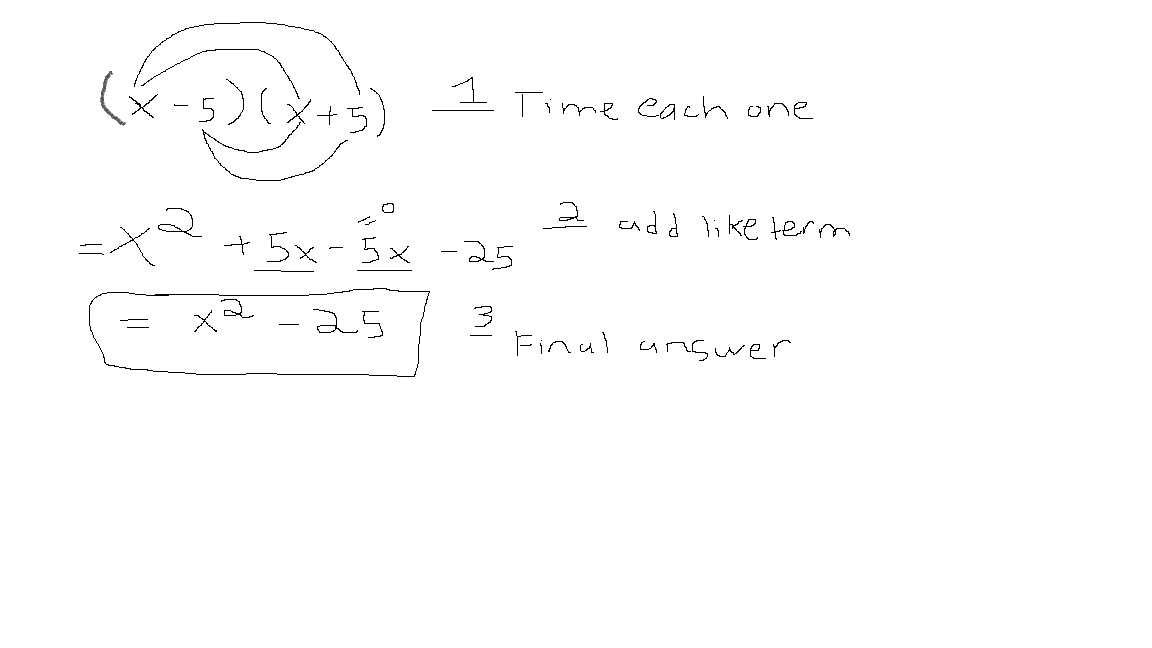 (x - 5)(x + 5) 1 Time each one
= x² + 5x - 5x - 25 2 add like term
= 0
= x² - 25 3 Final answer